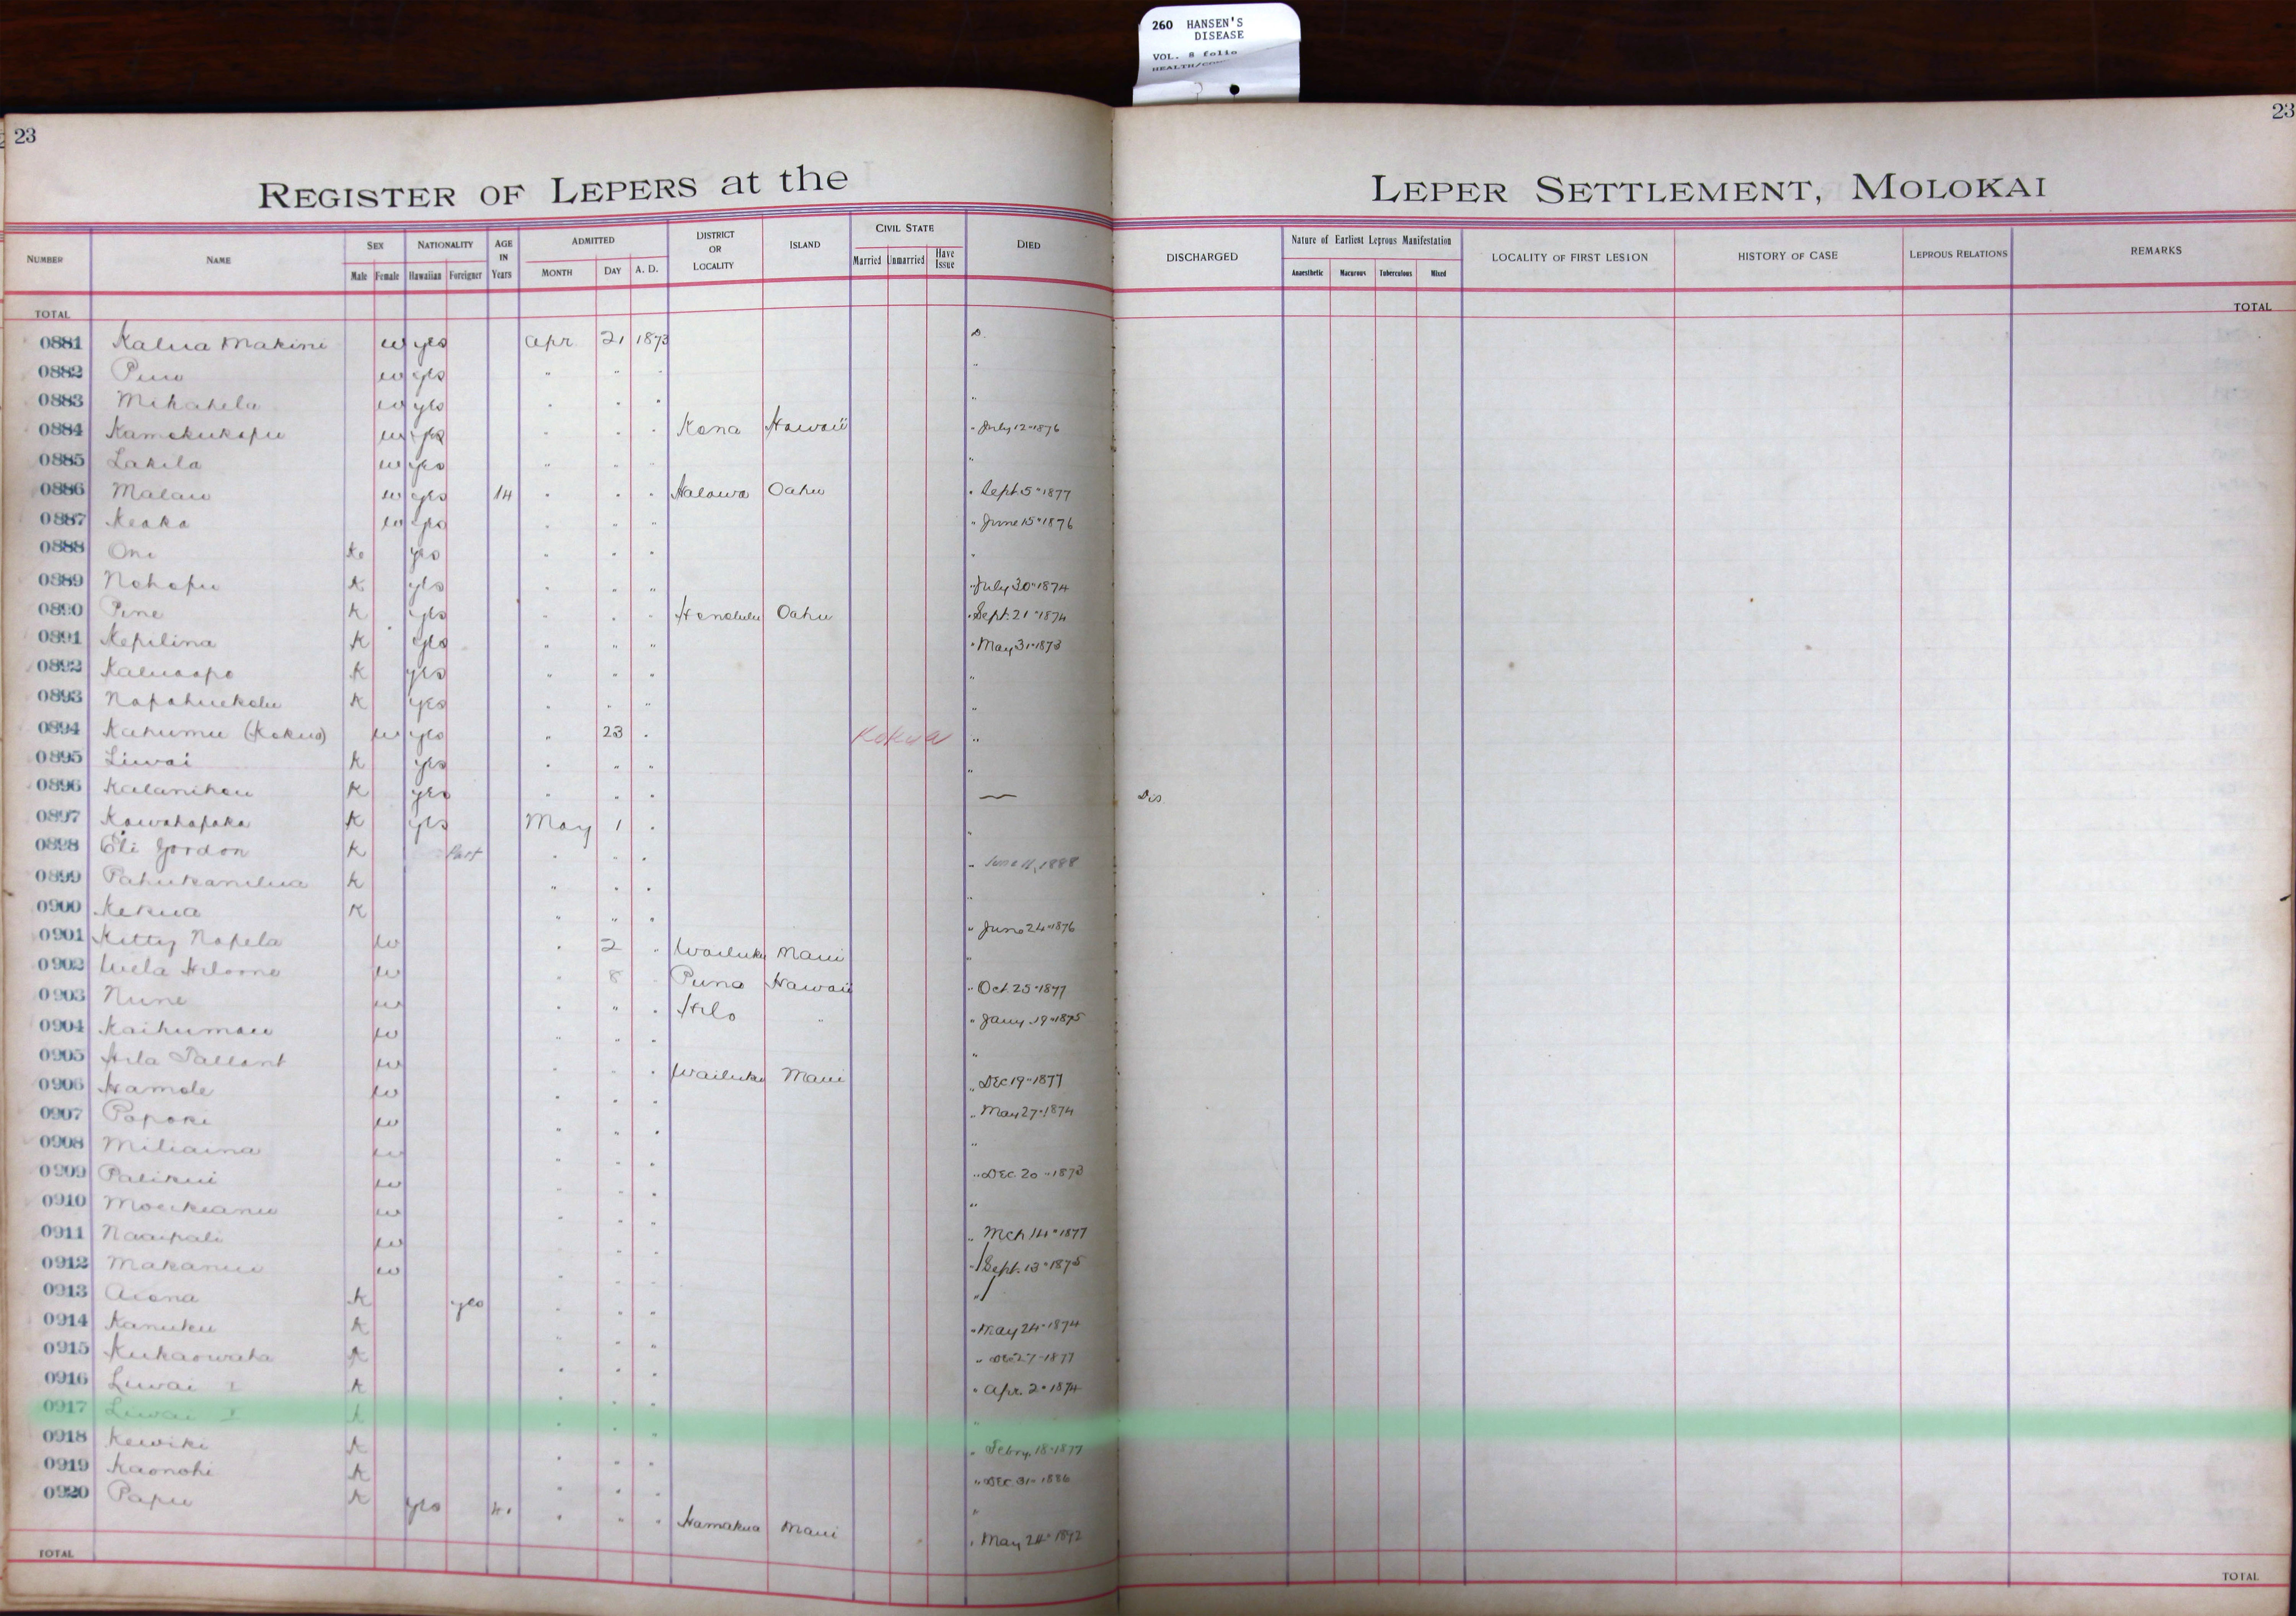 260 HANSEN'S
DISEASE
VOL. 8 folio
23
23
REGISTER OF LEPERS at the LEPER SETTLEMENT, MOLOKAI
NUMBER NAME SEX NATIONALITY AGE IN Years ADMITTED DISTRICT OR LOCALITY ISLAND CIVIL STATE DIED DISCHARGED Nature of Earliest Leprous Manifestation LOCALITY OF FIRST LESION HISTORY OF CASE LEPROUS RELATIONS REMARKS
Male Female Hawaiian Foreigner MONTH DAY A. D. Married Unmarried Have Issue Anaesthetic Macurous Tuberculous Mixed
TOTAL TOTAL
0881 Kalua Makini w yes Apr 21 1873 D.
0882 w yes " " " "
0883 Mikahela w yes " " " "
0884 Kamokukapu w yes " " " Kona Hawaii " July 12" 1876
0885 Lakila w yes " " " "
0886 Malau w yes 14 " " " Halawa Oahu " Sept. 5" 1877
0887 Keaka w yes " " " " June 15" 1876
0888 Oni K yes " " " "
0889 Nohopu K yes " " " " July 30" 1874
0890 Pine K yes " " " Honolulu Oahu " Sept. 21" 1874
0891 Kepilina K yes " " " " May 31" 1873
0892 K yes " " " "
0893 Napahuekolu K yes " " " "
0894 Kahumu (Kokua) w yes " 23 " Kokua "
0895 Liwai K yes " " " "
0896 Kalanihou K yes " " " — Dis
0897 Kawahapaka K yes May 1 " "
0898 Eli Gordon K Part " " " " June 11, 1888
0899 Pahukanilua K " " " "
0900 Kekua K " " " " June 24" 1876
0901 Kitty Napela w " 2 " Wailuku Maui "
0902 w " 8 Puna Hawaii " Oct. 25" 1877
0903 Nune w " " " Hilo " " Jany. 19" 1875
0904 Kaihumau w " " " "
0905 Hila Tallant w " " " Wailuku Maui " Dec 19" 1877
0906 Hamole w " " " " May 27" 1874
0907 Popoki w " " " "
0908 Miliaina w " " " " Dec. 20" 1873
0909 Palikui w " " " "
0910 Moeikeanu w " " " " Mch 14" 1877
0911 Naaipali w " " " " Sept. 13" 1875
0912 Makanui w " " " "
0913 Aiona K yes " " " " May 24" 1874
0914 Kanuku K " " " " 1877
0915 Kukaowaha K " " " " Apr. 2" 1874
0916 Liwai K " " " "
0917 Liwai K " " " " Febry. 18" 1877
0918 Kewiki K " " " " Dec 31" 1886
0919 Kaonohi K " " " "
0920 Papu K yes " " " Hamakua Maui " May 24" 1892
TOTAL TOTAL